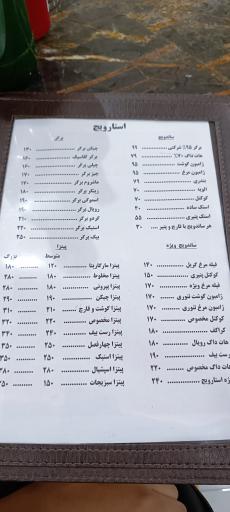 استارویچ
ساندویچ
برگر ۹۵٪ شرکتی ........ ۹۹
هات داگ ۷۰٪ ........ ۷۹
ژامبون گوشت ........ ۹۵
ژامبون مرغ ........ ۹۵
بندری ........ ۷۹
الویه ........ ۷۰
کوکتل ........ ۷۰
اسنک ساده ........ ۴۰
اسنک پنیری ........ ۵۵
هر ساندویچ با قارچ و پنیر ... ۳۰
ساندویچ ویژه
فیله مرغ گریل ........ ۱۴۰
کوکتل پنیری ........ ۱۵۰
فیله مرغ ویژه ........ ۱۷۰
ژامبون گوشت تنوری ........ ۱۷۰
ژامبون مرغ تنوری ........ ۱۷۰
کوکتل مخصوص ........ ۱۷۰
کراکف ........ ۱۸۰
هات داگ رویال ........ ۱۸۰
رست بیف ........ ۱۹۰
هات داگ مخصوص ........ ۲۲۰
ژه استارویچ ........ ۲۴۰
برگر
چیلی برگر ........ ۱۴۰
برگر کلاسیک ........ ۱۶۰
چیپلی برگر ........ ۱۶۰
چیز برگر ........ ۱۷۰
ماشروم برگر ........ ۱۷۰
زینگر برگر ........ ۱۸۰
اسموکی برگر ........ ۱۹۰
رویال برگر ........ ۱۹۰
گردو برگر ........ ۲۱۰
استیک برگر ........ ۲۲۰
بیگ برگر ........ ۲۵۰
پیتزا
متوسط بزرگ
پیتزا مارگاریتا ........ ۱۲۰ ........ ۱۸۰
پیتزا مخلوط ........ ۱۸۰ ........ ۲۸۰
پیتزا پپرونی ........ ۱۸۰ ........ ۲۸۰
پیتزا چیکن ........ ۱۹۰ ........ ۲۹۰
پیتزا گوشت و قارچ ........ ۲۱۰ ........ ۳۱۰
پیتزا مخصوص ........ ۲۲۰ ........ ۳۲۰
پیتزا رست بیف ........ ۲۴۰ ........ ۳۴۰
پیتزا چهارفصل ........ ۲۵۰ ........ ۳۵۰
پیتزا استیک ........ ۲۵۰ ........ ۳۵۰
پیتزا اسپشیال ........ ۲۸۰ ........ ۳۸۰
پیتزا سبزیجات ........ ۱۵۰ ........ ۲۵۰